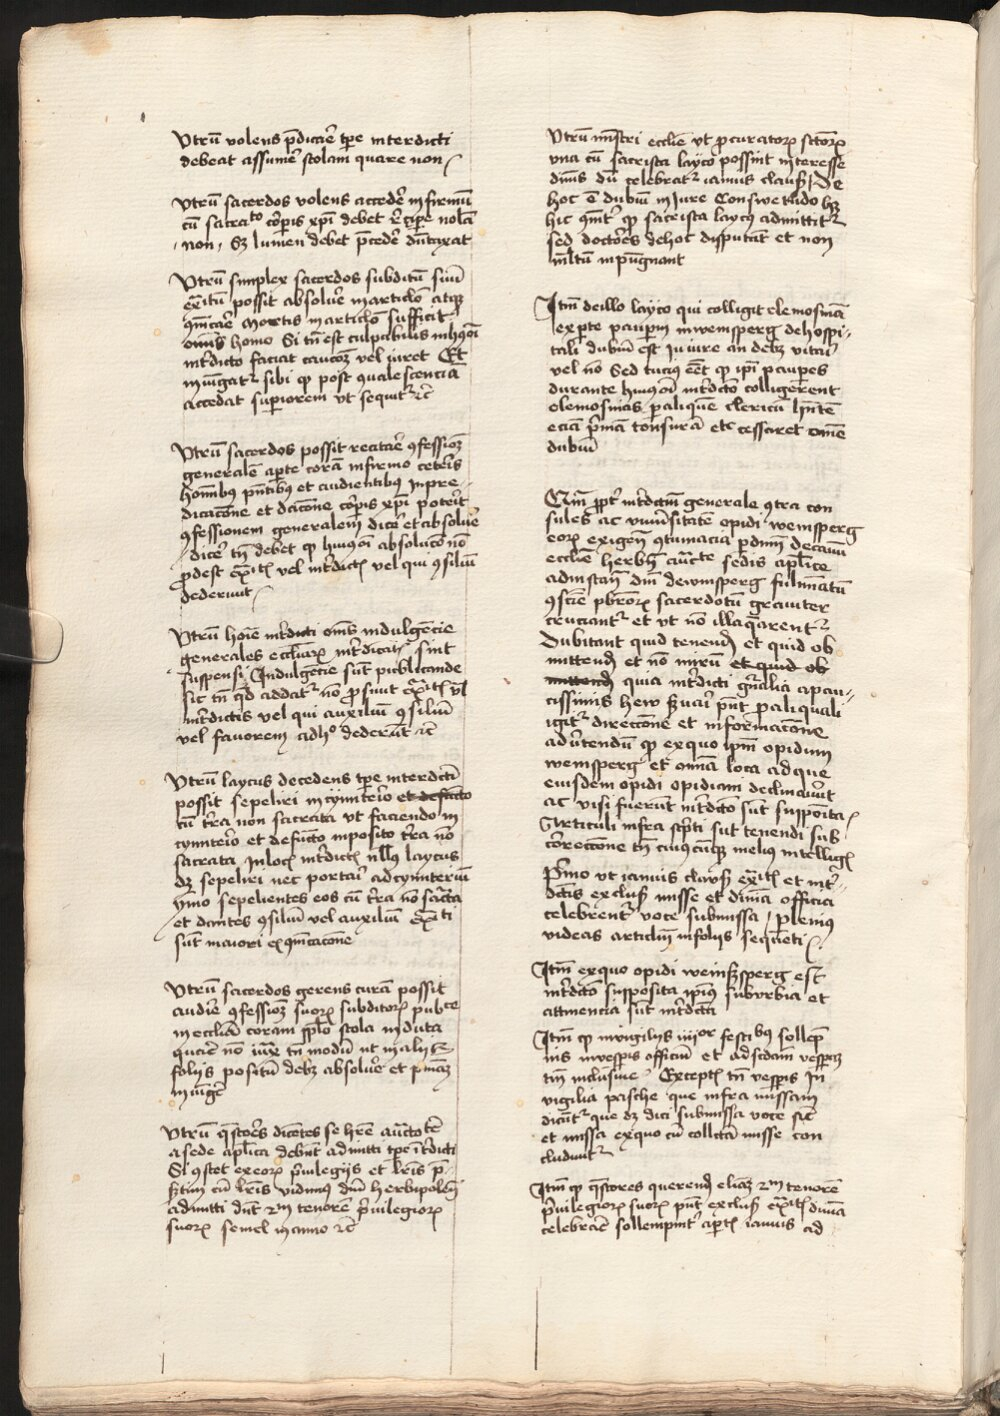 Vtrū volens p̄dicar̄ tp̄e interdicti
debeat assumer̄ stolam quare non
Vtrū sacerdos volens acceder̄ infirmū
cū sacra͞to cōrpis xp̄i debet r̄cip̄e nolā
non Sz lumen debet p̄ceder̄ dūtaxat
Vtrū simplex sacerdos subditū suū
possit absoluer̄ in articlo atqz
mortis in articlo sufficit
om̄s homo Si tn̄ est culpabilis in
int̄dicto faciat caucōz vel iuret Et
iniūgat᷑ sibi qp post ꝯualescenciā
accedat supiorem vt sequit᷑ ⁊c̄
Vtrū sacerdos possit recitar̄ ꝯfessiōz
generalē apte corā infirmo ceteris
hom̄ibus pn̄tibus et audientibus In pre
dicacōne et dacōne cōrpis xp̄i poterit
ꝯfessionem generalem dicer̄ et absoluer̄
dicer̄ tn̄ debet qp huiꝰmōi absolucō nō
prodest vel int̄dict vel qui ꝯsiliū
dederunt
Vtrū int̄dicti om̄s indulgēcie
generales eccliarꝝ sint
suspensi Indulgēcie sūt publicande
sic tn̄ qd addat᷑ nō prosint vl̄
int̄dictis vel qui auxiliū ꝯsiliū
vel fauorem ad h° dederūt ⁊c̄
Vtrū laycus decedens tp̄e interdicti
possit sepeliri in cymiterio et defūcto
cū t̄ra non sacrata vt faciendo in
cymiterio et defūcto inposito t̄ra nō
sacrata In locꝭ int̄dictꝭ nllꝰ laycus
dz sepeliri nec portari ad cymiteriū
ymo sepelientes eos cū t̄ra nō sac̄ta
et dantes ꝯsiliū vel auxiliū
sūt maiori exꝯm̄icacōne
Vtrū sacerdos gerens curā possit
audir̄ ꝯfessiōz suorꝝ subditorꝝ pub͞ce
in ecclia coram pplo stola induta
nō tn̄ modū vt in alijs
folijs positū debz absoluer̄ et
iniūger̄
Vtrū q̄stores dicētes se hr̄e auctotē
a sede aplica debent admitti tp̄e int̄dicti
Si ꝯstet ex eorꝝ p̄uilegijs et lr̄is p̄
sertim cū lr̄is vidimꝰ dn̄i herbipolen̄
admitti dn̄t ⁊m tenorē p̄uilegiorꝝ
suorꝝ semel in anno ⁊c̄
Vtrū ministri ecclie vt procuratorꝝ
vna cū sacrista layco possint interesse
diuīs dū celebrat᷑ ianuis clausꝭ De
hoc ē dubiū in Jure Conswetudo hz
hic qp sacrista laycꝰ admittit᷑
sed doctores de hoc disputāt et non
mltū inpūgnant
Itm̄ de illo layco qui colligit elemosinā
ex pte paupm in weinsperg de hospi
tali dubiū est In iure an debz vitari
vel nō Sed tucius eēt qp ip̄i paupes
durante huiꝰmōi int̄dicto colligerent
elemosinas p aliquē clericū hn̄tē
eciā p̄mā tonsurā etc cessaret om̄e
dubiū
Cum ppt int̄dictū generale ꝯtra con
sules ac vniūsitatē opidi weinsperg
eorꝝ exigen̄ ꝯtumacia p dnm̄ decanū
ecclie herbn̄ auctē sedis aplice
ad instan̄ dni dewinsperg fulminatū
ꝯscie pbrōrꝝ sacerdotū grauiter
cruciant᷑ et vt nō illaq̄arent᷑
Dubitant quid tenend et quid ob
mittend et nō mirū et quid ob
mittend quia int̄dicti gn̄alia a pau
cissimis hew suari pn̄t p aliquali
igit᷑ direccōne et informacōne
aduertendū qp ex quo ip̄m opidum
weinsperg et om̄ia loca ad que
eiusdem opidi opidiani declinauerīt
ac visi fuerūt int̄dicto sūt supposita
Articuli infra sc̄pti sūt tenendi sub
correccōne tn̄ cuiꝰcūqz melius intelligꝭ
Primo vt ianuis clausꝭ et int̄
dictis exclusꝭ misse et diuīa officia
celebrent᷑ voce submissa pleniꝰ
videas articlm̄ in folijs sequēti
Itm̄ ex quo opidi weinsperg est
int̄dicto supposita ipiꝰ suburbia et
attinencia sūt int̄dicta
Itm̄ qp in vigilijs iiijor festibꝰ sollep
nis in vesperis officiū et ad scdam vesperꝝ
tm̄ inclusiue Exceptꝭ tn̄ vesperis In
vigilia pasche que infra missam
dicūt᷑ que dz dici submissa voce sic̄
et missa ex quo cū collecta misse con
cludunt᷑
Itm̄ qp q̄stores querend eliaz ⁊m tenorē
p̄uilegiorꝝ suorꝝ pn̄t exclusꝭ diuīa
celebrar̄ sollempnit aptꝭ ianuis ad